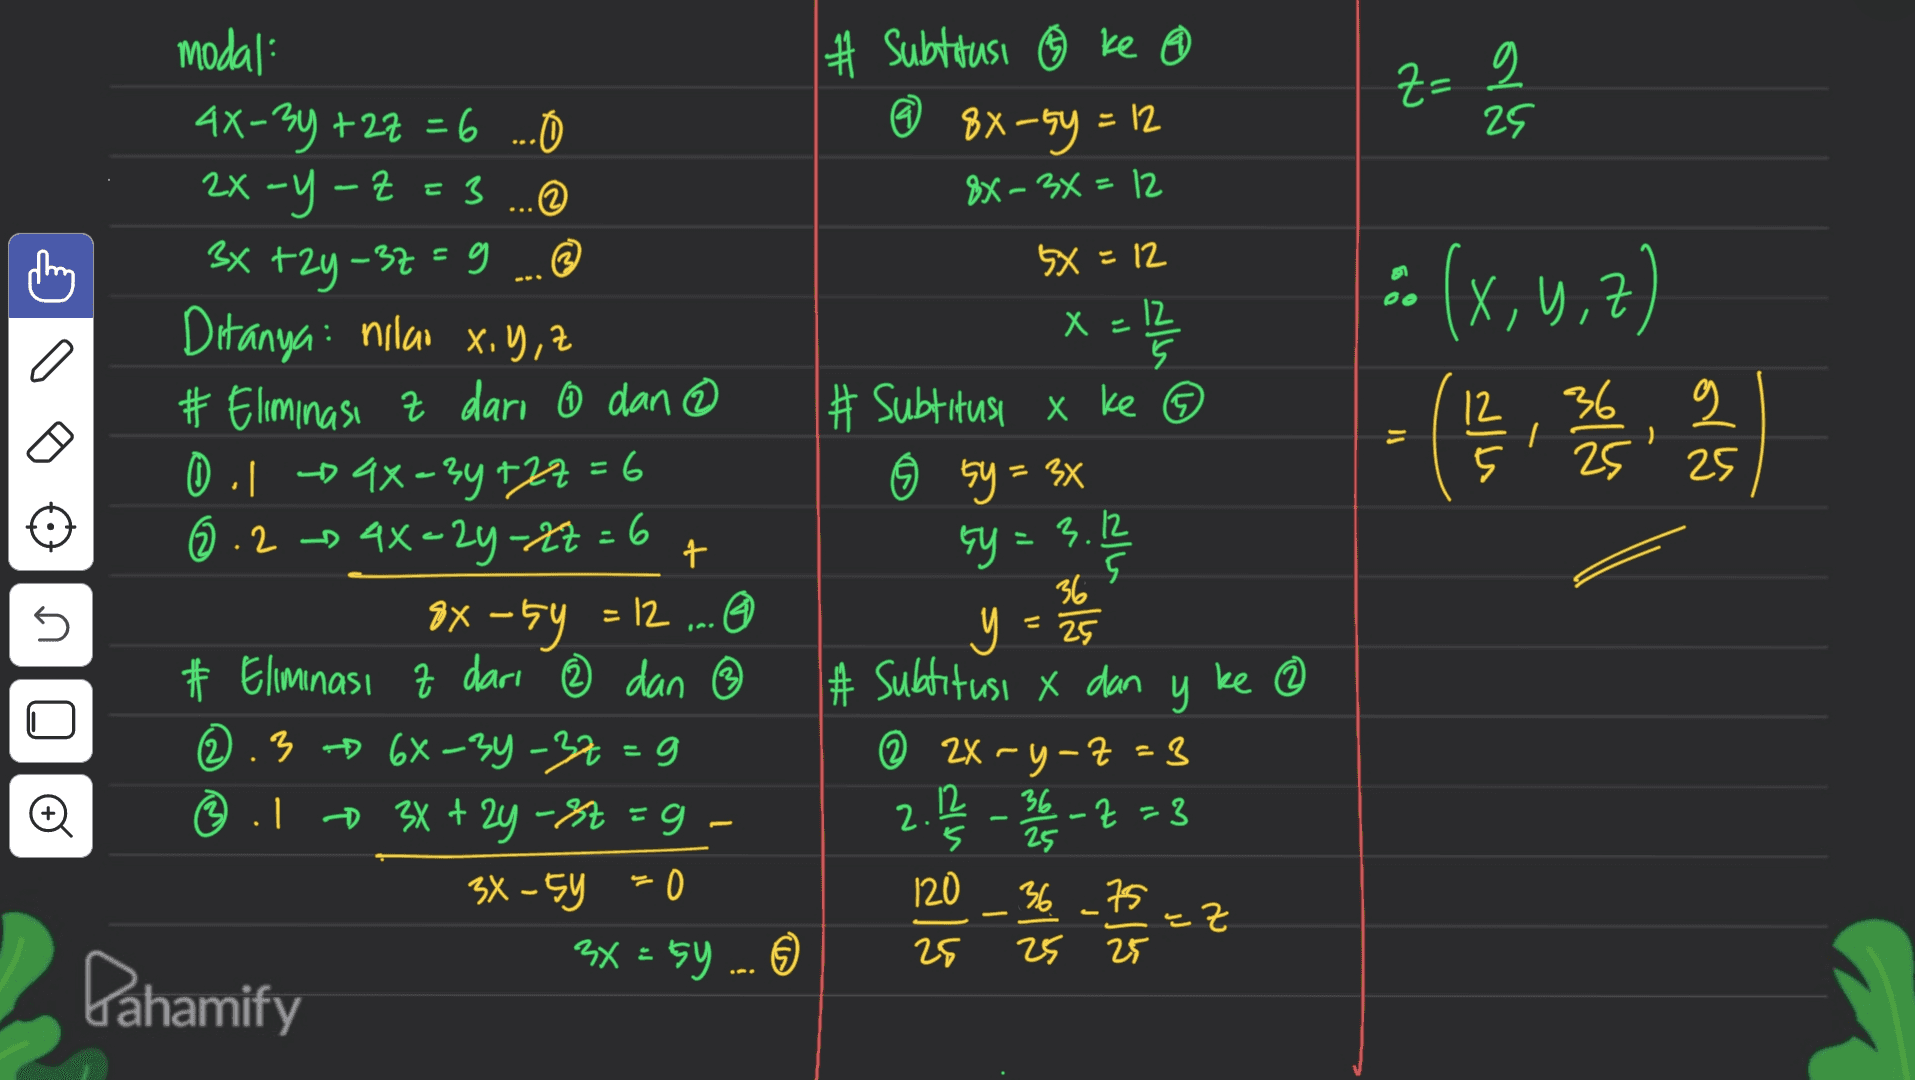 modal:
4x-3y+2z = 6 ...①
2x-y-z = 3 ...②
3x+2y-3z = 9 ...③
Ditanya: nilai x,y,z
# Eliminasi z dari ① dan ②
①.1 → 4x-3y+2z = 6
②.2 → 4x-2y-2z = 6 +
8x-5y = 12 ...④
# Eliminasi z dari ② dan ③
②.3 → 6x-3y-3z = 9
③.1 → 3x+2y-3z = 9 -
3x-5y = 0
3x = 5y ...⑤
# Subtitusi ⑤ ke ④
④ 8x-5y = 12
8x-3x = 12
5x = 12
x = 12/5
# Subtitusi x ke ⑤
⑤ 5y = 3x
5y = 3.12/5
y = 36/25
# Subtitusi x dan y ke ②
② 2x-y-z = 3
2.12/5 - 36/25 - z = 3
120/25 - 36/25 - 75/25 = z
z = 9/25
∴ (x, y, z)
= (12/5, 36/25, 9/25)
Pahamify